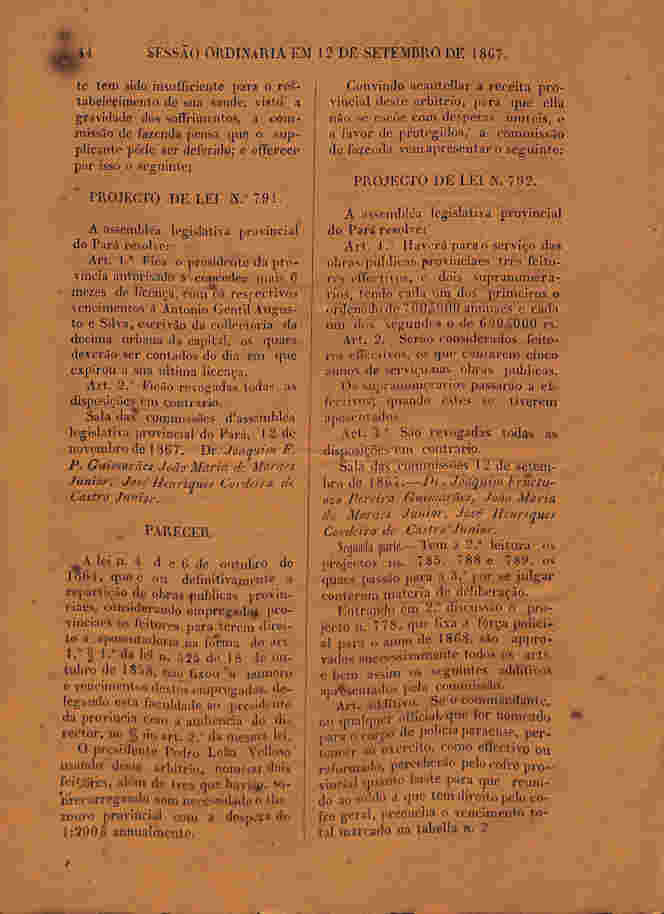 44 SESSÃO ORDINARIA EM 12 DE SETEMBRO DE 1867.
te tem sido insufficiente para o res-
tabelecimento de sua saude, visto a
gravidade dos soffrimentos, a com-
missão de fazenda pensa que o sup-
plicante póde ser deferido; e offerece
por isso o seguinte:
PROJECTO DE LEI N.º 791.
A assembléa legislativa provincial
do Pará resolve:
Art. 1.º Fica o presidente da pro-
vincia autorisado a conceder mais 6
mezes de licença, com os respectivos
vencimentos á Antonio Gentil Augus-
to e Silva, escrivão da collectoria da
decima urbana da capital, os quaes
deverão ser contados do dia em que
expirou a sua ultima licença.
Art. 2.º Ficão revogadas todas as
disposições em contrario.
Sala das commissões d'assembléa
legislativa provincial do Pará, 12 de
novembro de 1867. Dr. Joaquim F.
P. Guimarães João Maria de Moraes
Junior, José Henriques Cordeiro de
Castro Junior.
PARECER.
A lei n. 4 d e 6 de outubro de
1864, que c ou definitivamente a
repartição de obras publicas provin-
ciaes, considerando empregados pro-
vinciaes os feitores para terem direi-
to a aposentadoria na fórma do art.
1.º § 1.º da lei n. 525 de 18 de ou-
tubro de 1858, não fixou o numero
e vencimentos destes empregados, de-
legando esta faculdade ao presidente
da provincia com a audiencia do di-
rector, no § do art. 2.º da mesma lei.
O presidente Pedro Leão Velloso
usando deste arbitrio, nomeou dois
feitores, além de tres que havia, so-
brecarregando sem necessidade o the-
zouro provincial com a despeza de
1:200$ annualmente.
Convindo acautellar a receita pro-
vincial deste arbitrio, para que ella
não se escôe com despezas inuteis, e
a favor de protegidos, a commissão
de fazenda vem apresentar o seguinte:
PROJECTO DE LEI N. 792.
A assembléa legislativa provincial
do Pará resolve:
Art. 1. Haverá para o serviço das
obras publicas provinciaes tres feito-
res effectivos, e dois supranumera-
rios, tendo cada um dos primeiros o
ordenado de 700$000 annuaes e cada
um dos segundos o de 600$000 rs.
Art. 2. Serão considerados feito-
res effectivos, os que contarem cinco
annos de serviço nas obras publicas.
Os supranumerarios passarão a ef-
fectivos, quando estes se tiverem
aposentados.
Art. 3.º São revogadas todas as
disposições em contrario.
Sala das commissões 12 de setem-
bro de 1867.—Dr. Joaquim Fructu-
oso Pereira Guimarães, João Maria
de Moraes Junior, José Henriques
Cordeiro de Castro Junior.
Segunda parte.—Tem a 2.ª leitura os
projectos ns. 785, 788 e 789, os
quaes passão para a 3.ª por se julgar
conterem materia de deliberação.
Entrando em 2.ª discussão o pro-
jecto n. 778, que fixa a força polici-
al para o anno de 1868, são appro-
vados successivamente todos os arts.
e bem assim os seguintes additivos
apresentados pela commissão.
Art. additivo. Se o commandante,
ou qualquer official que for nomeado
para o corpo de policia paraense, per-
tencer ao exercito, como effectivo ou
reformado, perceberão pelo cofre pro-
vincial quanto baste para que reuni-
do ao soldo a que tem direito pelo co-
fre geral, preencha o vencimento to-
tal marcado na tabella n. 2